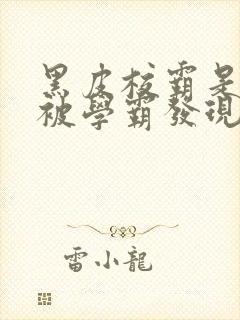 黑皮校霸是
被學霸發現
雷小龍